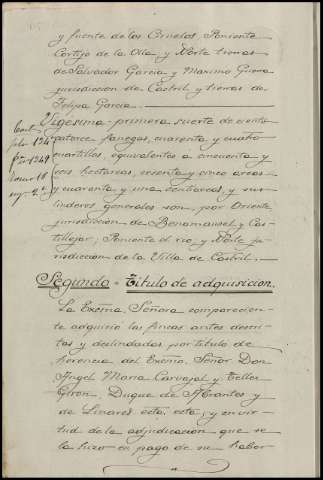 y fuente de los Ciruelos Poniente
Cortijo de la Olla y Norte tierras
de Salvador Garcia y Maximo Guerra
jurisdiccion de Castril y tierras de
Felipa Garcia.
Vigesima-primera suerte de ciento
catorce fanegas, cuarenta y cuatro
cuartillos, equivalentes a cincuenta y
seis hectareas, sesenta y cinco areas
y cuarenta y una centiareas, y sus
linderos generales son, por Oriente
jurisdiccion de Benamaurel y Cas-
tillejar; Poniente el rio, y Norte ju-
risdiccion de la Villa de Castril.
Segundo = Título de adquisicion.
La Excma. Señora comparecien-
te adquirió las fincas antes descri-
tas y deslindadas por titulo de
herencia del Excmo. Señor Don
Angel Maria Carvajal y Tellez
Giron, Duque de Abrantes y
de Linares esta, esta; y en vir-
tud de la adjudicacion que se
la hizo en pago de su haber
folio 124